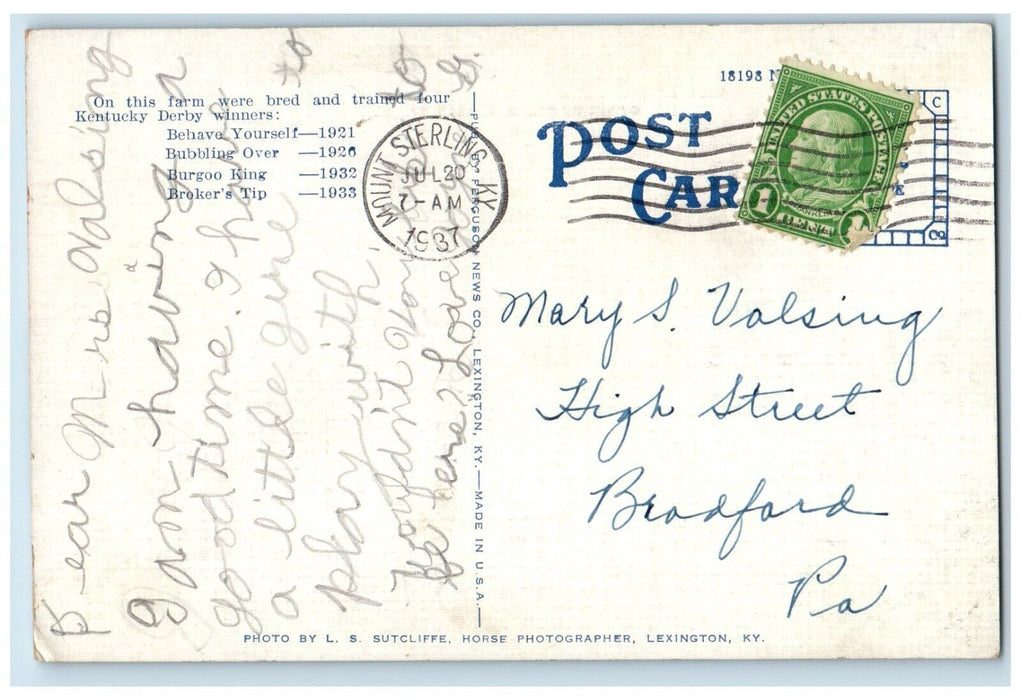 On this farm were bred and trained four
Kentucky Derby winners:
Behave Yourself—1921
Bubbling Over —1926
Burgoo King —1932
Broker's Tip —1933
Dear Mrs Valsing
I am having a
good time. I have to
a little girl to
play with
Wouldn't you to
be here? Love
G.
MOUNT STERLING, KY.
JUL 20
7-AM
1937
PUB. BY FERGUSON NEWS CO., LEXINGTON, KY.—MADE IN U.S.A.
18198 N
POST
CAR
UNITED STATES POSTAGE
FRANKLIN
1 CENT
C
E
CO
Mary S. Valsing
High Street
Bradford
Pa
PHOTO BY L. S. SUTCLIFFE, HORSE PHOTOGRAPHER, LEXINGTON, KY.